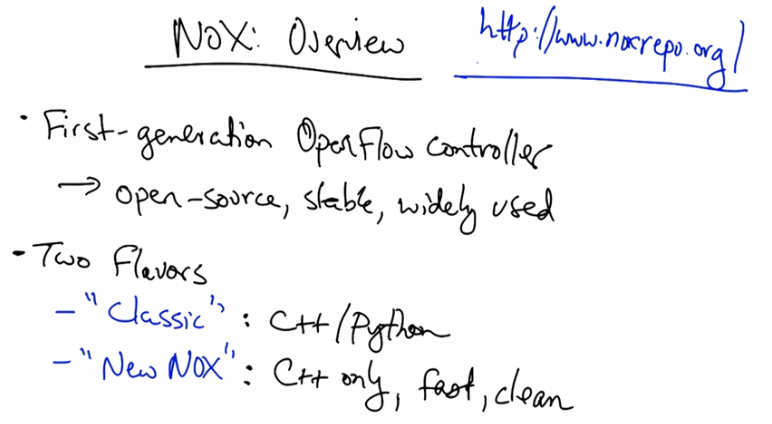 NOX: Overview http://www.noxrepo.org/
• First-generation OpenFlow controller
→ open-source, stable, widely used
• Two Flavors
- "Classic": C++/Python
- "New NOX": C++ only, fast, clean